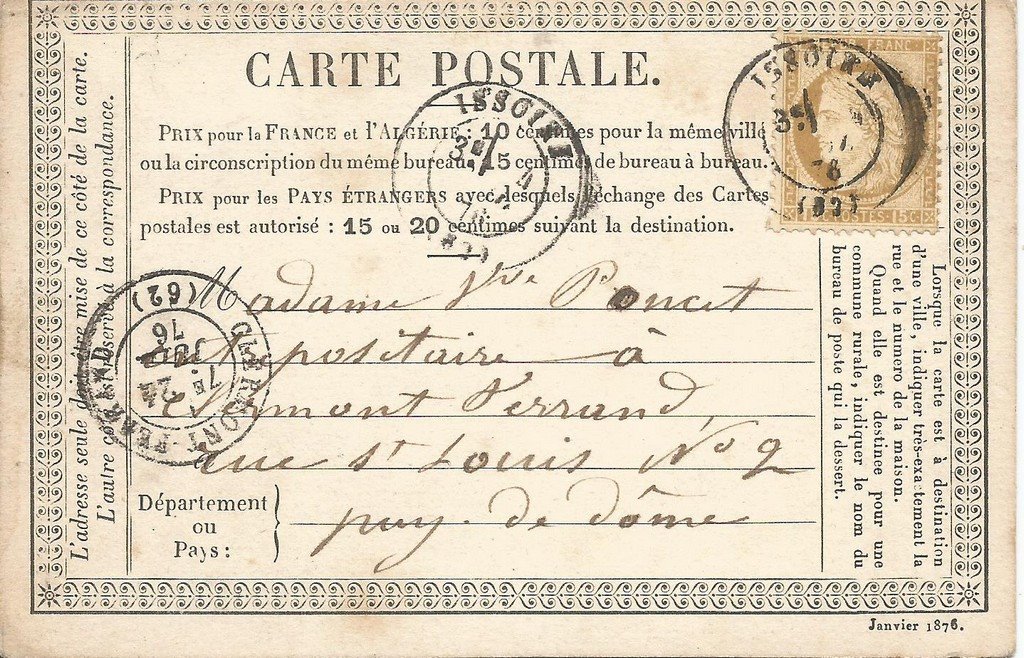 CARTE POSTALE.
PRIX pour la FRANCE et l'ALGÉRIE : 10 centimes pour la même ville
ou la circonscription du même bureau. 15 centimes de bureau à bureau.
PRIX pour les PAYS ÉTRANGERS avec lesquels l'échange des Cartes
postales est autorisé : 15 ou 20 centimes suivant la destination.
FRANC
POSTES 15 C
ISSOIRE
3E
(62)
ISSOIRE
3E
L'adresse seule doit être mise de ce côté de la carte.
L'autre côté est réservé à la correspondance.
CLERMONT-FERRAND
7E
24
JUIL
76
(62)
Madame Vve Poncet
à
Clermont Ferrand,
rue st Louis No 2
Département
ou
Pays :
puy. de dôme
Lorsque la carte est à destination
d'une ville, indiquer très-exactement la
rue et le numero de la maison.
Quand elle est destinee pour une
commune rurale, indiquer le nom du
bureau de poste qui la dessert.
Janvier 1876.